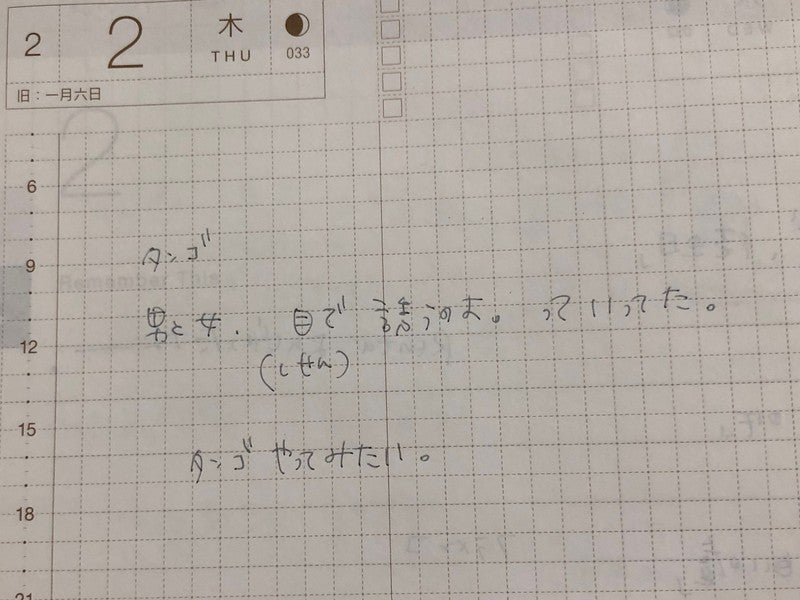 2
2
木
THU
033
旧：一月六日
6
タンゴ
9
男と女. 目で 誘うのよ。 っていってた。
12
(しせん)
15
タンゴ やってみたい。
18
21